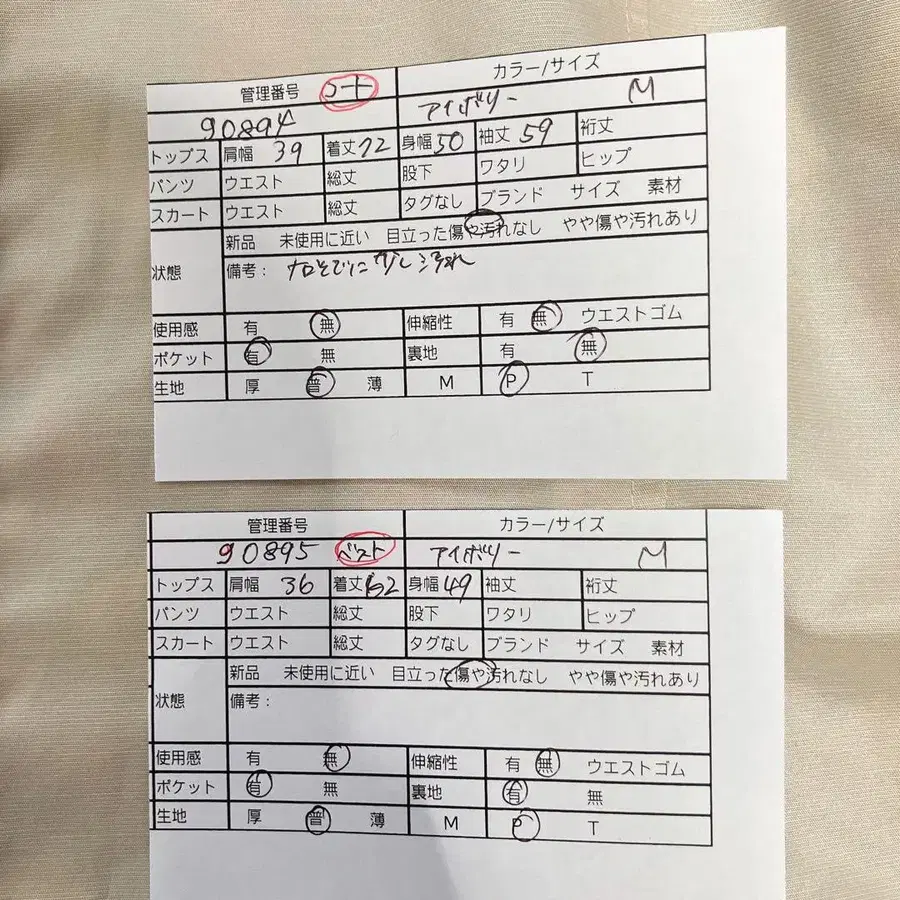 管理番号 コート カラー/サイズ
90894 アイボリー M
トップス 肩幅 39 着丈 72 身幅 50 袖丈 59 裄丈
パンツ ウエスト 総丈 股下 ワタリ ヒップ
スカート ウエスト 総丈 タグなし ブランド サイズ 素材
状態 新品 未使用に近い 目立った傷や汚れなし やや傷や汚れあり
備考: 少し汚れ
使用感 有 無 伸縮性 有 無 ウエストゴム
ポケット 有 無 裏地 有 無
生地 厚 普 薄 M P T
管理番号 カラー/サイズ
90895 ベスト アイボリー M
トップス 肩幅 36 着丈 身幅 49 袖丈 裄丈
パンツ ウエスト 総丈 股下 ワタリ ヒップ
スカート ウエスト 総丈 タグなし ブランド サイズ 素材
状態 新品 未使用に近い 目立った傷や汚れなし やや傷や汚れあり
備考:
使用感 有 無 伸縮性 有 無 ウエストゴム
ポケット 有 無 裏地 有 無
生地 厚 普 薄 M P T